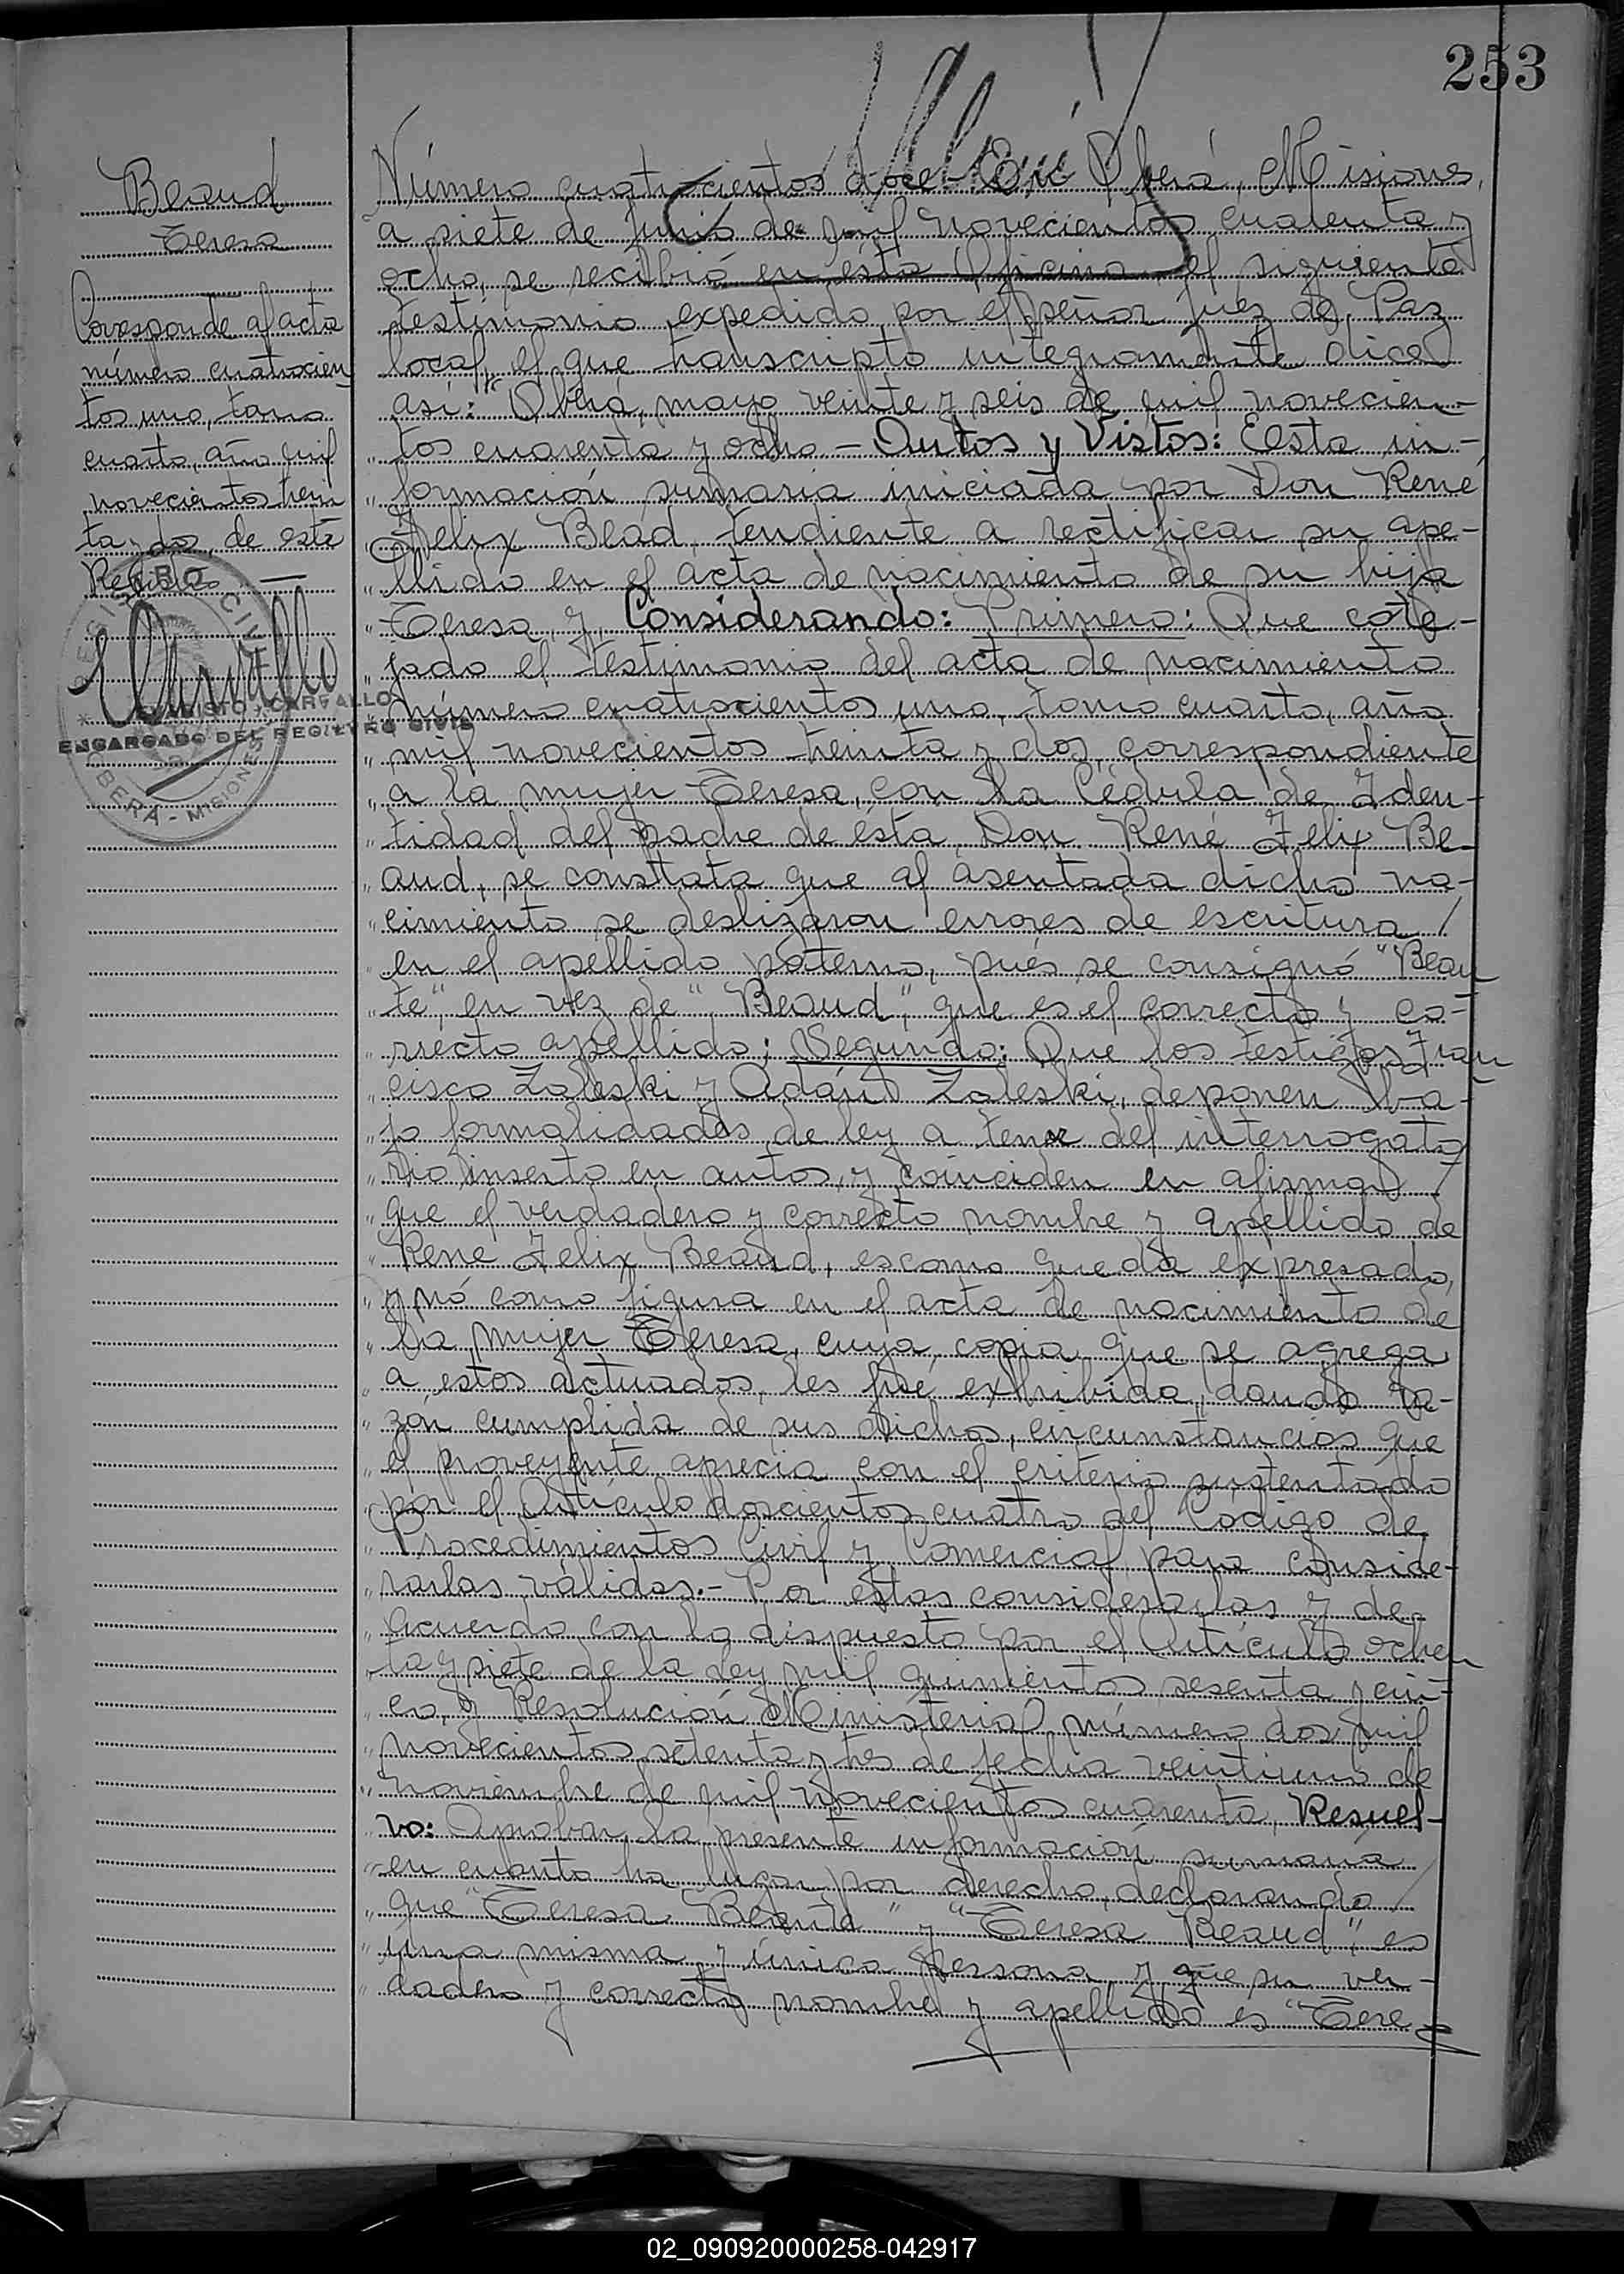 253
Beaud
Teresa
Corresponde al acta
número cuatrocien
tos uno, tomo
cuarto, año mil
novecientos trein
ta y dos, de este
REGISTRO CIVIL
OBERÁ - MISIONES
CARVALLO
ENCARGADO DEL REGISTRO CIVIL
Número cuatrocientos doce. En Oberá, Misiones,
a siete de junio de mil novecientos cuarenta y
ocho, se recibió en ésta Oficina el siguiente
testimonio expedido por el señor Juez de Paz
local, el que transcripto integramente dice
así: "Oberá, mayo veinte y seis de mil novecien-
"tos cuarenta y ocho - Autos y Vistos: Esta in-
"formación sumaria iniciada por Don René
"Felix Bead, tendiente a rectificar su ape-
"llido en el acta de nacimiento de su hija
"Teresa, y, Considerando: Primero: Que cote-
"jado el testimonio del acta de nacimiento
"número cuatrocientos uno, tomo cuarto, año
"mil novecientos treinta y dos, correspondiente
"a la mujer Teresa, con la Cédula de Iden-
"tidad del padre de ésta, Don René Felix Be-
"aud, se constata que al asentada dicho na-
"cimiento se deslizaron errores de escritura /
"en el apellido paterno, pués se consignó "Beau
"te", en vez de "Beaud", que es el correcto y co-
"rrecto apellido; Segundo: Que los testigos Fran
"cisco Zaleski y Adán Zaleski, deponen ba-
"jo formalidades de ley a tenor del interrogato
"rio inserto en autos, y coinciden en afirmar /
"que el verdadero y correcto nombre y apellido de
"Rene Felix Beaud, es como queda expresado,
"y nó como figura en el acta de nacimiento de
"la mujer Teresa, cuya copia que se agrega
"a estos actuados, les fué exhibida, dando ra-
"zón cumplida de sus dichos, circunstancias que
"el proveyente aprecia con el criterio sustentado
"por el Artículo doscientos cuatro del Código de
"Procedimientos Civil y Comercial para conside-
"rarlas válidas.- Por estas considerarlas y de
"acuerdo con lo dispuesto por el Artículo ochen
"ta y siete de la Ley mil quinientos sesenta y cin-
"co, y Resolución Ministerial número dos mil
"novecientos setenta y tres de fecha veintiuno de
"noviembre de mil novecientos cuarenta, Resuel-
"vo: Aprobar la presente información sumaria
"en cuanto ha lugar por derecho, declarando /
"que "Teresa Beaute" y "Teresa Beaud", es
"una misma y única persona, y que su ver-
"dadero y correcto nombre y apellido es "Tere
02_090920000258-042917